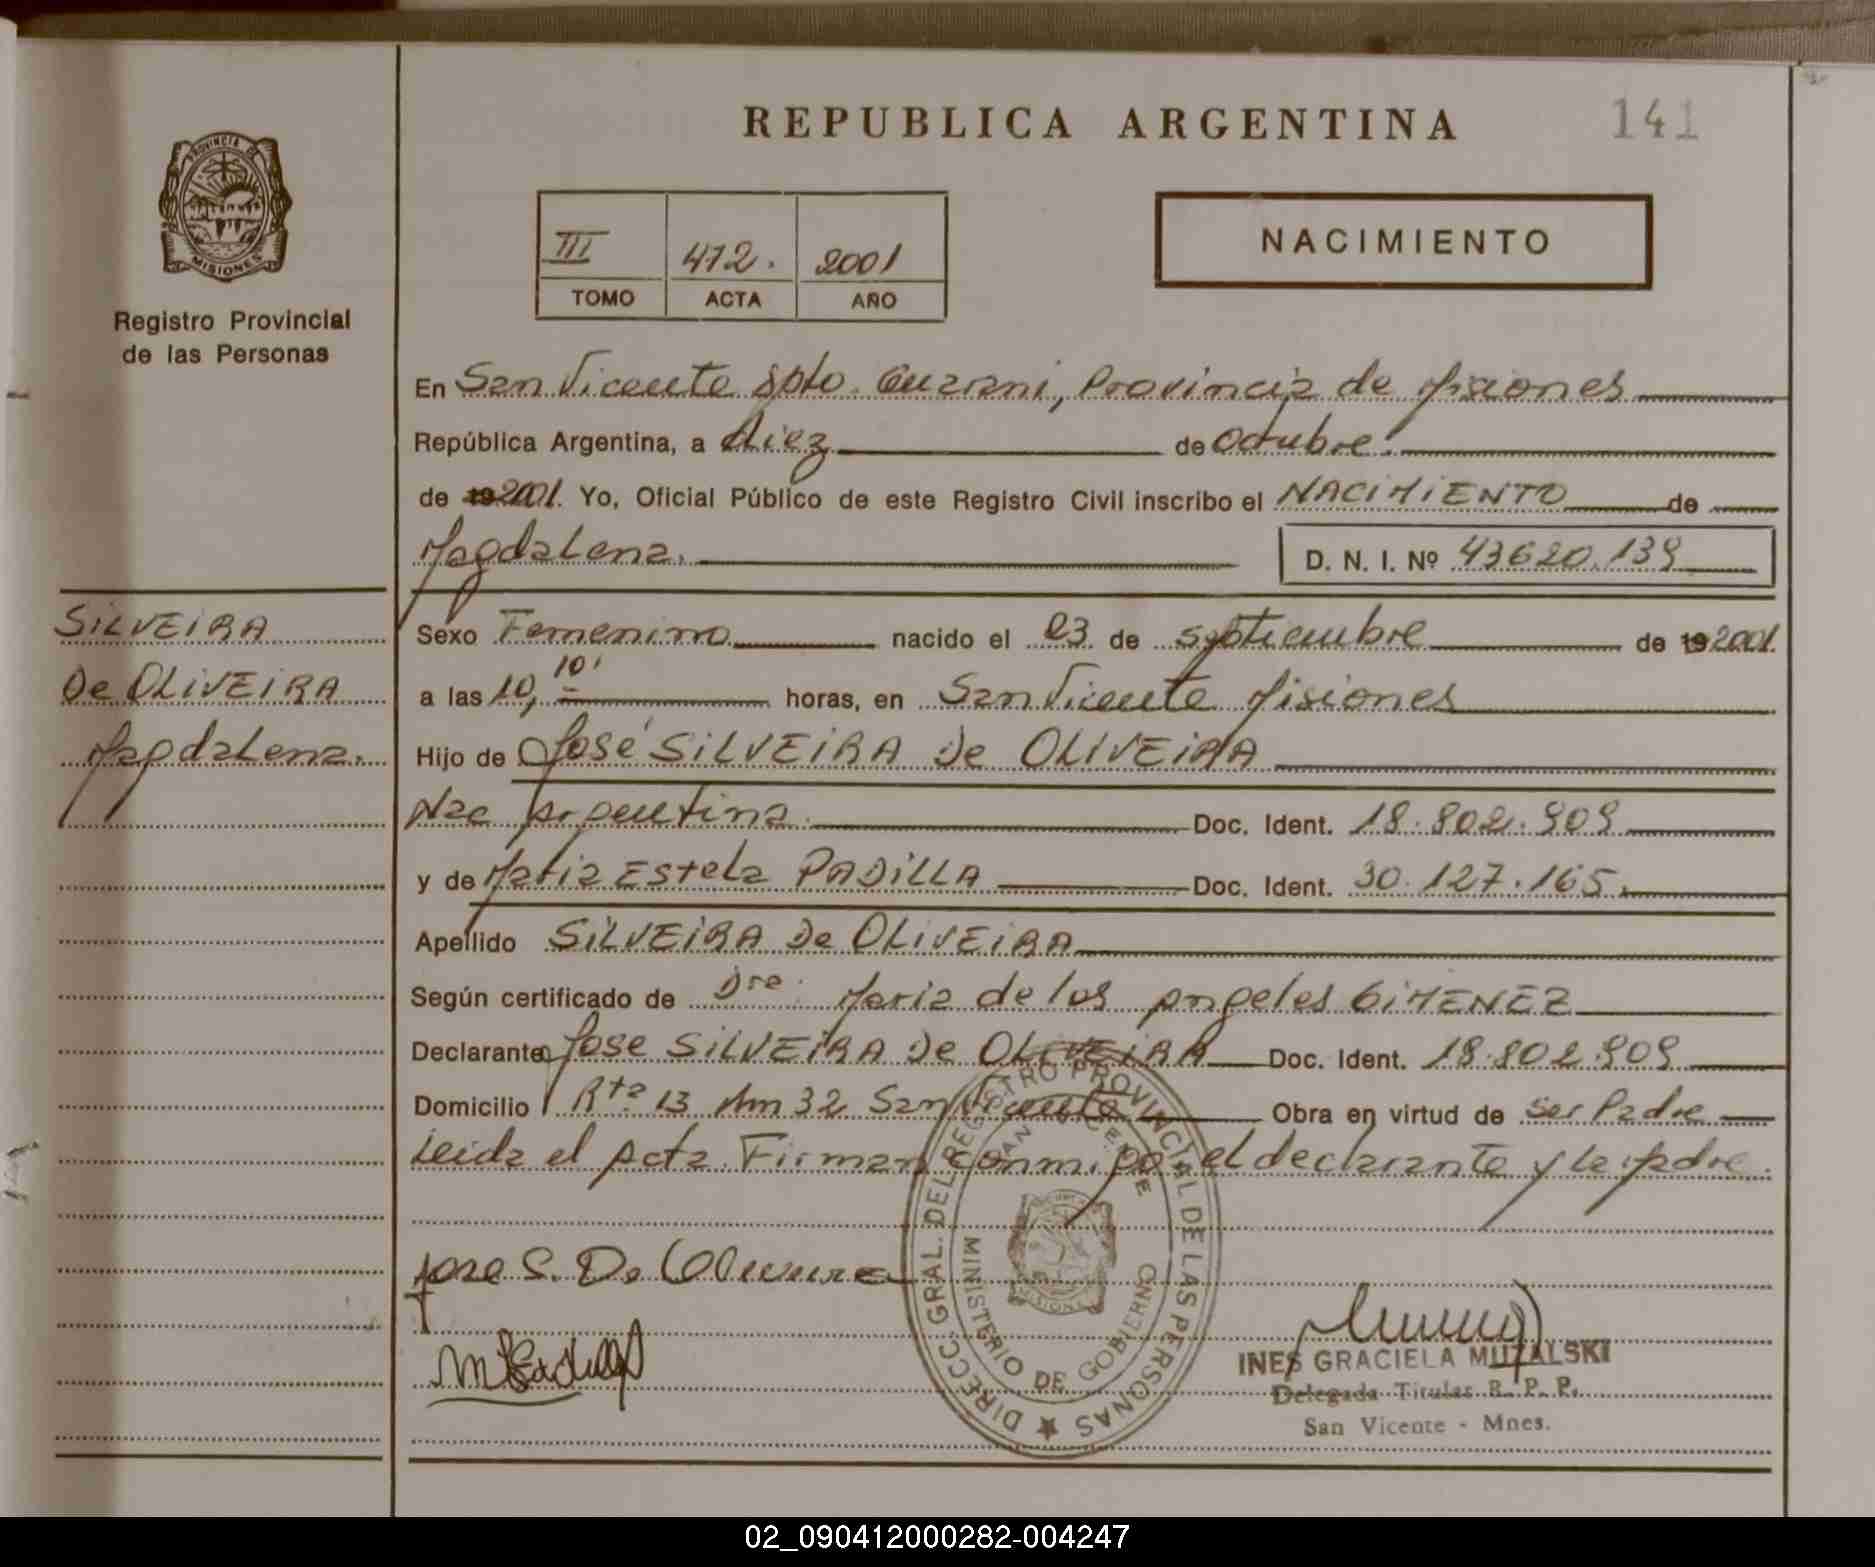 REPUBLICA ARGENTINA
141
PROVINCIA DE
MISIONES
Registro Provincial
de las Personas
III 412. 2001
TOMO ACTA AÑO
NACIMIENTO
En San Vicente Dpto. Guarani, Provincia de Misiones
República Argentina, a diez de Octubre.
de 19 2001. Yo, Oficial Público de este Registro Civil inscribo el NACIMIENTO de
Magdalena.
D. N. I. Nº 43620.139
SILVEIRA
De OLIVEIRA
Magdalena.
Sexo Femenino nacido el 23 de septiembre de 19 2001.
a las 10, 10' horas, en San Vicente Misiones
Hijo de José SILVEIRA De OLIVEIRA
Nac Argentina. Doc. Ident. 18.802.909
y de Maria Estela PADILLA Doc. Ident. 30.127.165.
Apellido SILVEIRA De OLIVEIRA
Según certificado de Dra. Maria de los Angeles GIMENEZ
Declarante Jose SILVEIRA De OLIVEIRA Doc. Ident. 18.802.909
Domicilio Rta 13 Km 32 San Vicente Obra en virtud de ser Padre
Leida el Acta. Firman conmigo el declarante y la madre.
Jose S. De Oliveira
DIRECC. GRAL. DEL REGISTRO PROVINCIAL DE LAS PERSONAS
SAN VICENTE
MINISTERIO DE GOBIERNO
INES GRACIELA MUZALSKI
Delegada Titular R. P. P.
San Vicente - Mnes.
02_090412000282-004247